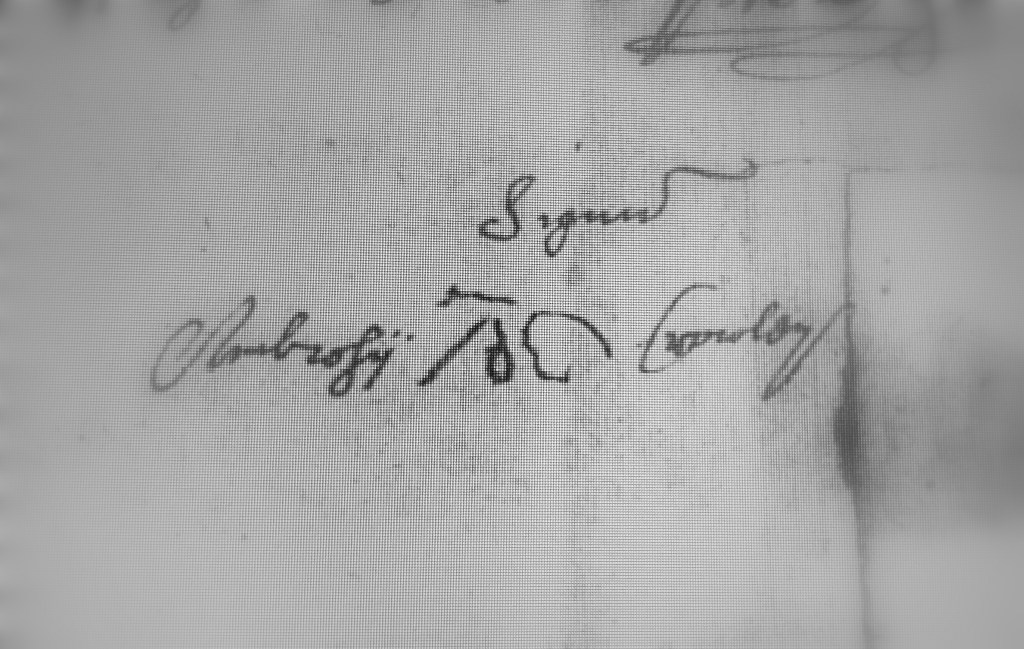 Signum
Ambrosij Crowley